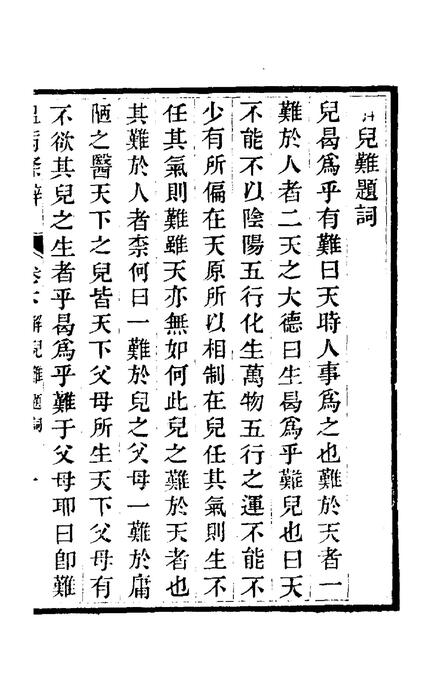 解兒難題詞
兒曷爲乎有難曰天時人事爲之也難於天者一
難於人者二天之大德曰生曷爲乎難兒也曰天
不能不以陰陽五行化生萬物五行之運不能不
少有所偏在天原所以相制在兒任其氣則生不
任其氣則難雖天亦無如何此兒之難於天者也
其難於人者柰何曰一難於兒之父母一難於庸
陋之醫天下之兒皆天下父母所生天下父母有
不欲其兒之生者乎曷爲乎難于父母耶曰卽難
溫病條辨 卷六 解兒難題詞 一